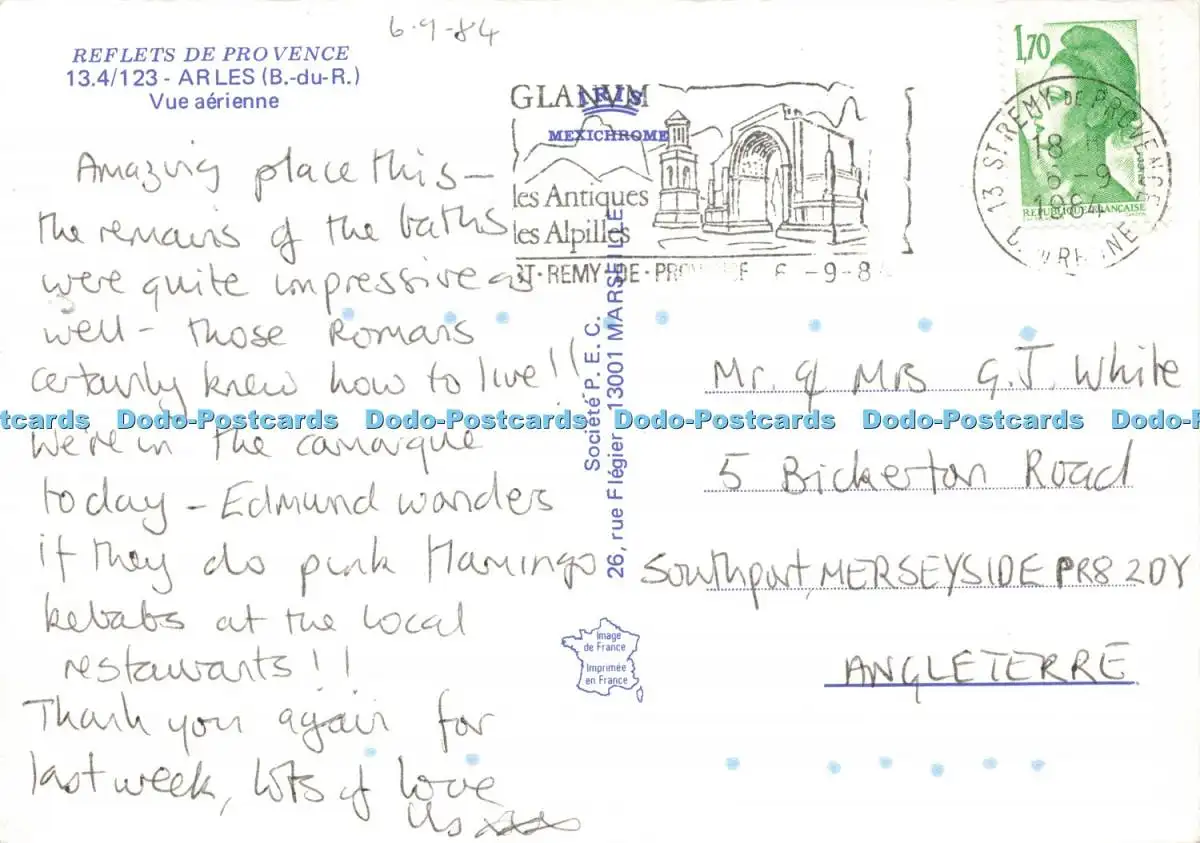 6.9-84
REFLETS DE PROVENCE
13.4/123 - ARLES (B.-du-R.)
Vue aérienne
Amazing place this -
the remains of the baths
were quite impressive as
well - those Romans
certainly knew how to live!!
We're in the camargue
today - Edmund wonders
if they do pink flamingo
kebabs at the local
restaurants!!
Thank you again for
last week, lots of love
Us xxxx
GLANVM
les Antiques
les Alpilles
ST-REMY-DE-PROVENCE 6 -9-8
IRIS
MEXICHROME
1,70
REPUBLIQUE FRANÇAISE
13 ST REMY DE PROVENCE
18
6 -9
1984
Société P. E. C.
26, rue Flégier - 13001 MARSEILLE
Mr. & Mrs G.J. White
5 Bickerton Road
Southport, MERSEYSIDE PR8 2DY
ANGLETERRE
Image
de France
Imprimée
en France
tcards Dodo-Postcards Dodo-Postcards Dodo-Postcards Dodo-Postcards Dodo-P